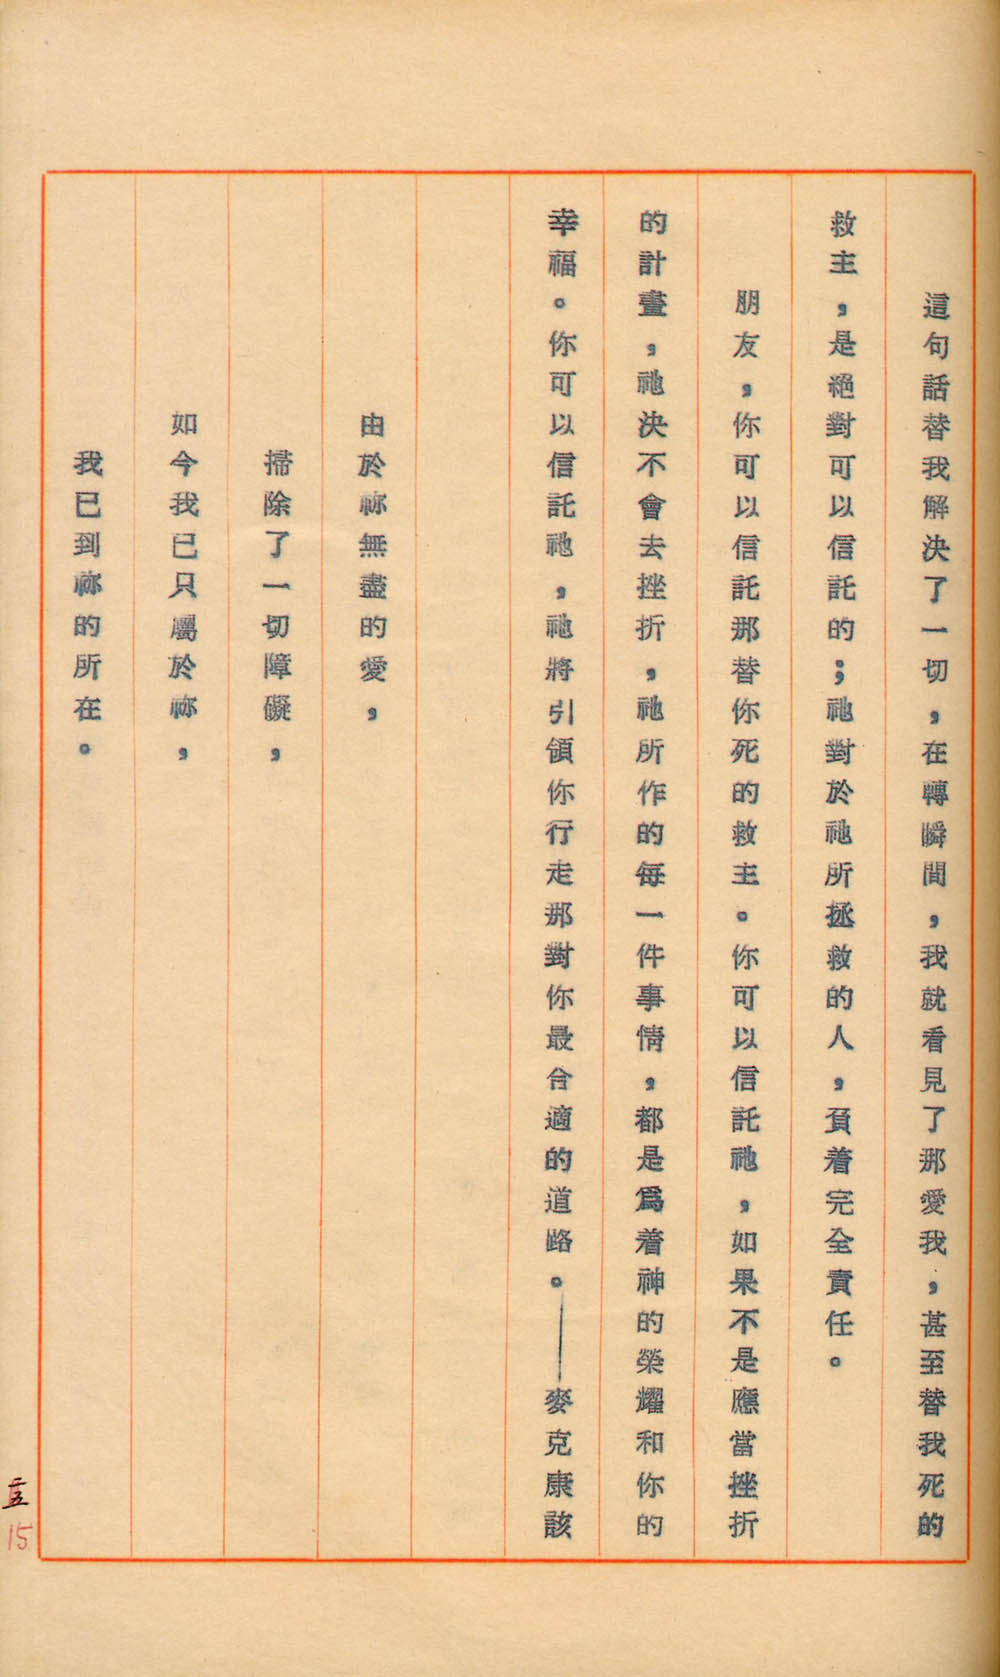 這句話替我解決了一切，在轉瞬間，我就看見了那愛我，甚至替我死的
救主，是絕對可以信託的；祂對於祂所拯救的人，負着完全責任。
朋友，你可以信託那替你死的救主。你可以信託祂，如果不是應當挫折
的計畫，祂決不會去挫折，祂所作的每一件事情，都是爲着神的榮耀和你的
幸福。你可以信託祂，祂將引領你行走那對你最合適的道路。——麥克康該
由於祢無盡的愛，
掃除了一切障礙，
如今我已只屬於祢，
我已到祢的所在。
15